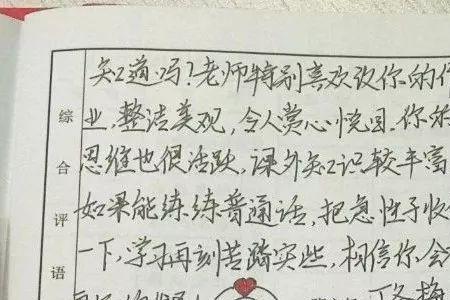 综合评语
知道吗?老师特别喜欢改你的作
业,整洁美观,令人赏心悦目.你的
思维也很活跃,课外知识较丰富
如果能练练普通话,把急性子收
一下,学习再刻苦踏实些,相信你会